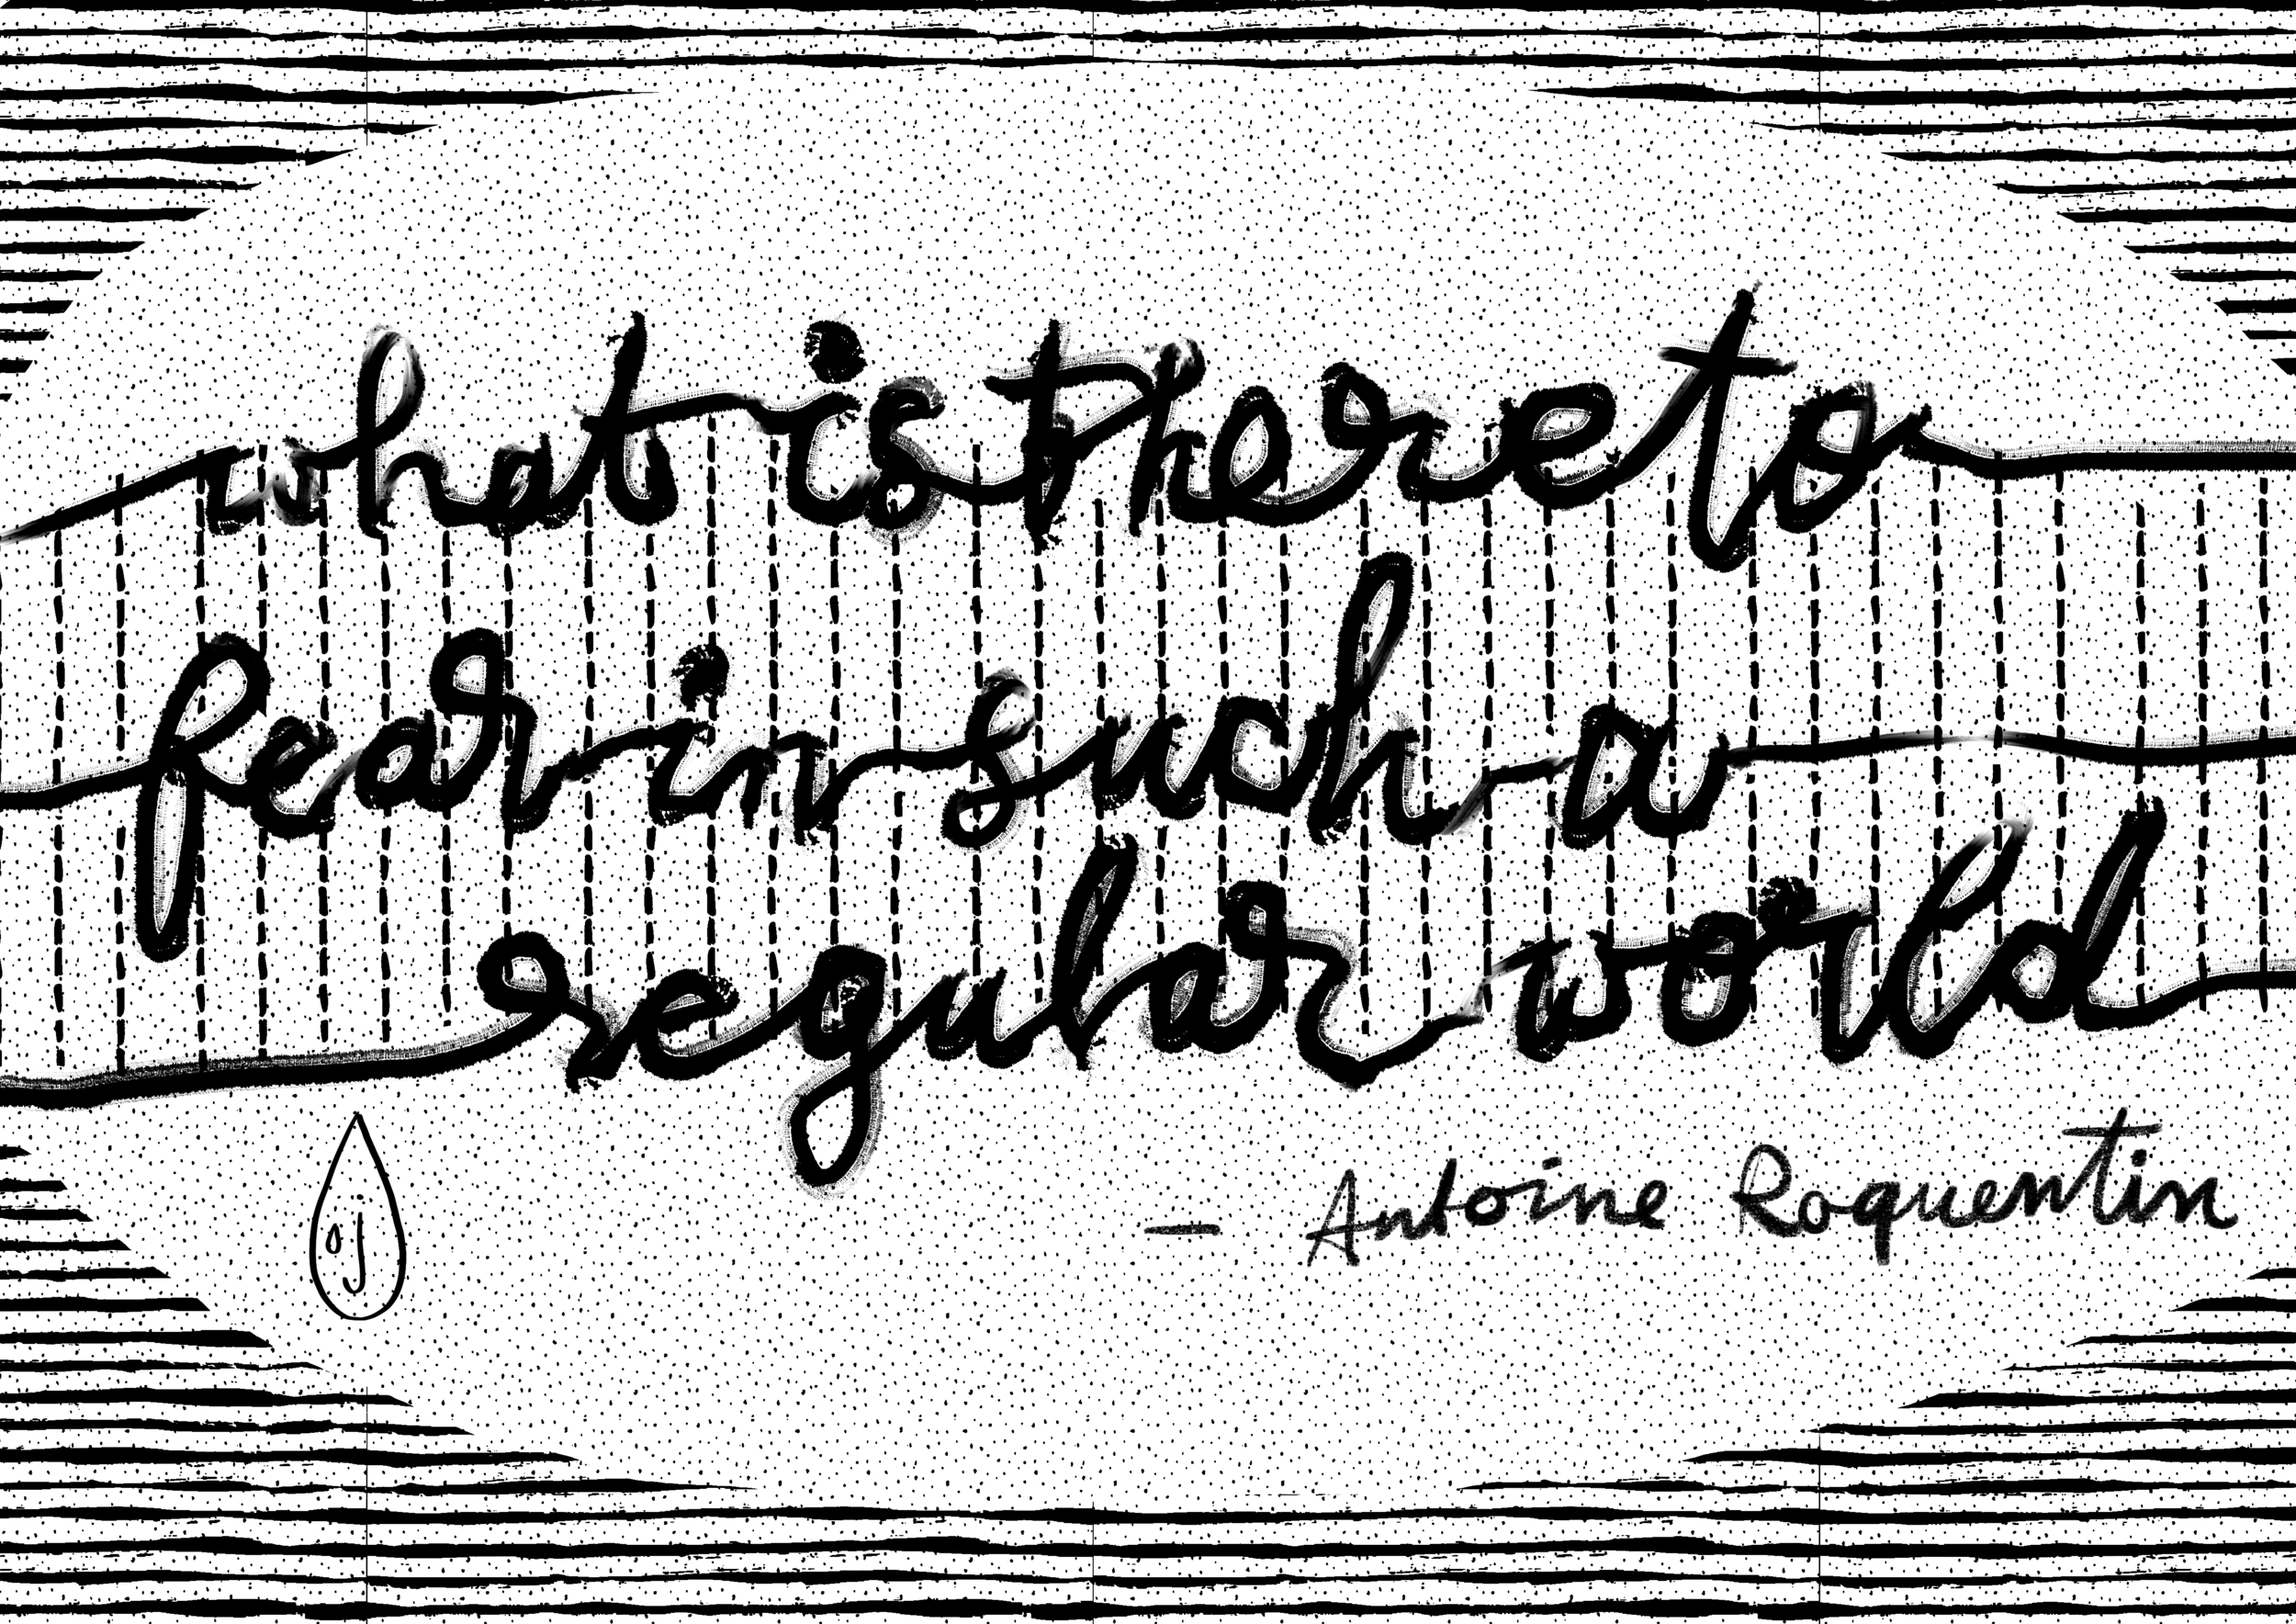 what is there to
fear in such a
regular world
— Antoine Roquentin
oj